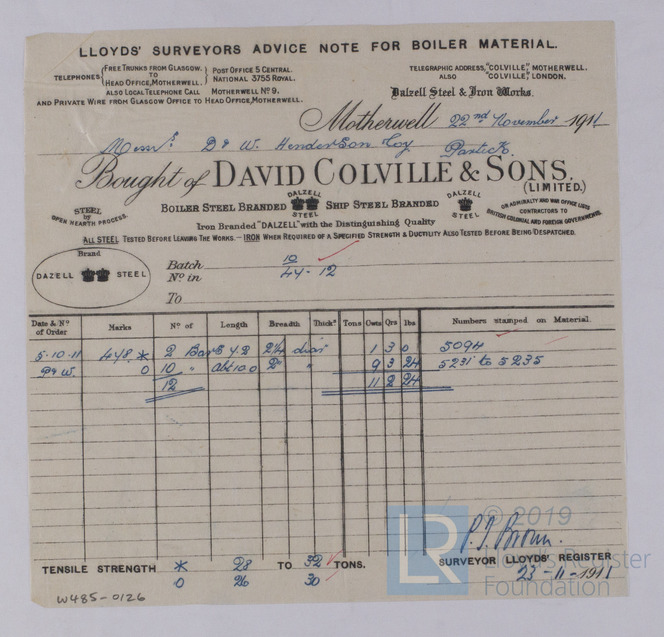 LLOYDS' SURVEYORS ADVICE NOTE FOR BOILER MATERIAL.
TELEPHONES { FREE TRUNKS FROM GLASGOW. TO HEAD OFFICE, MOTHERWELL. } POST OFFICE 5 CENTRAL. NATIONAL 3755 ROYAL.
ALSO LOCAL TELEPHONE CALL MOTHERWELL Nº 9.
AND PRIVATE WIRE FROM GLASGOW OFFICE TO HEAD OFFICE, MOTHERWELL.
TELEGRAPHIC ADDRESS, "COLVILLE," MOTHERWELL.
ALSO "COLVILLE," LONDON.
Dalzell Steel & Iron Works.
Motherwell 22nd November 1911
Messrs D & W. Henderson Coy Partick.
Bought of DAVID COLVILLE & SONS. (LIMITED.)
STEEL by OPEN HEARTH PROCESS.
BOILER STEEL BRANDED DALZELL STEEL SHIP STEEL BRANDED DALZELL STEEL
ON ADMIRALTY AND WAR OFFICE LISTS
CONTRACTORS TO
BRITISH COLONIAL AND FOREIGN GOVERNMENTS.
Iron Branded "DALZELL" with the Distinguishing Quality
ALL STEEL TESTED BEFORE LEAVING THE WORKS. – IRON WHEN REQUIRED OF A SPECIFIED STRENGTH & DUCTILITY ALSO TESTED BEFORE BEING DESPATCHED.
Brand
DAZELL STEEL
Batch 10
Nº in 44 - 12
To
Date & Nº of Order Marks Nº of Length Breadth Thickˢ Tons Cwts Qrs lbs Numbers stamped on Material.
5.10.11 448 * 2 Bars 4.2 2¼ diar 1 3 0 5094
D & W. 0 10 " abt 10.0 2" " 9 3 24 5231 to 5235
12 11 2 24
P. J. Brown.
TENSILE STRENGTH * 28 TO 32 TONS.
0 26 30
SURVEYOR LLOYDS' REGISTER
23-11-1911
W485-0126
© 2019
LR Lloyd's Register
Foundation